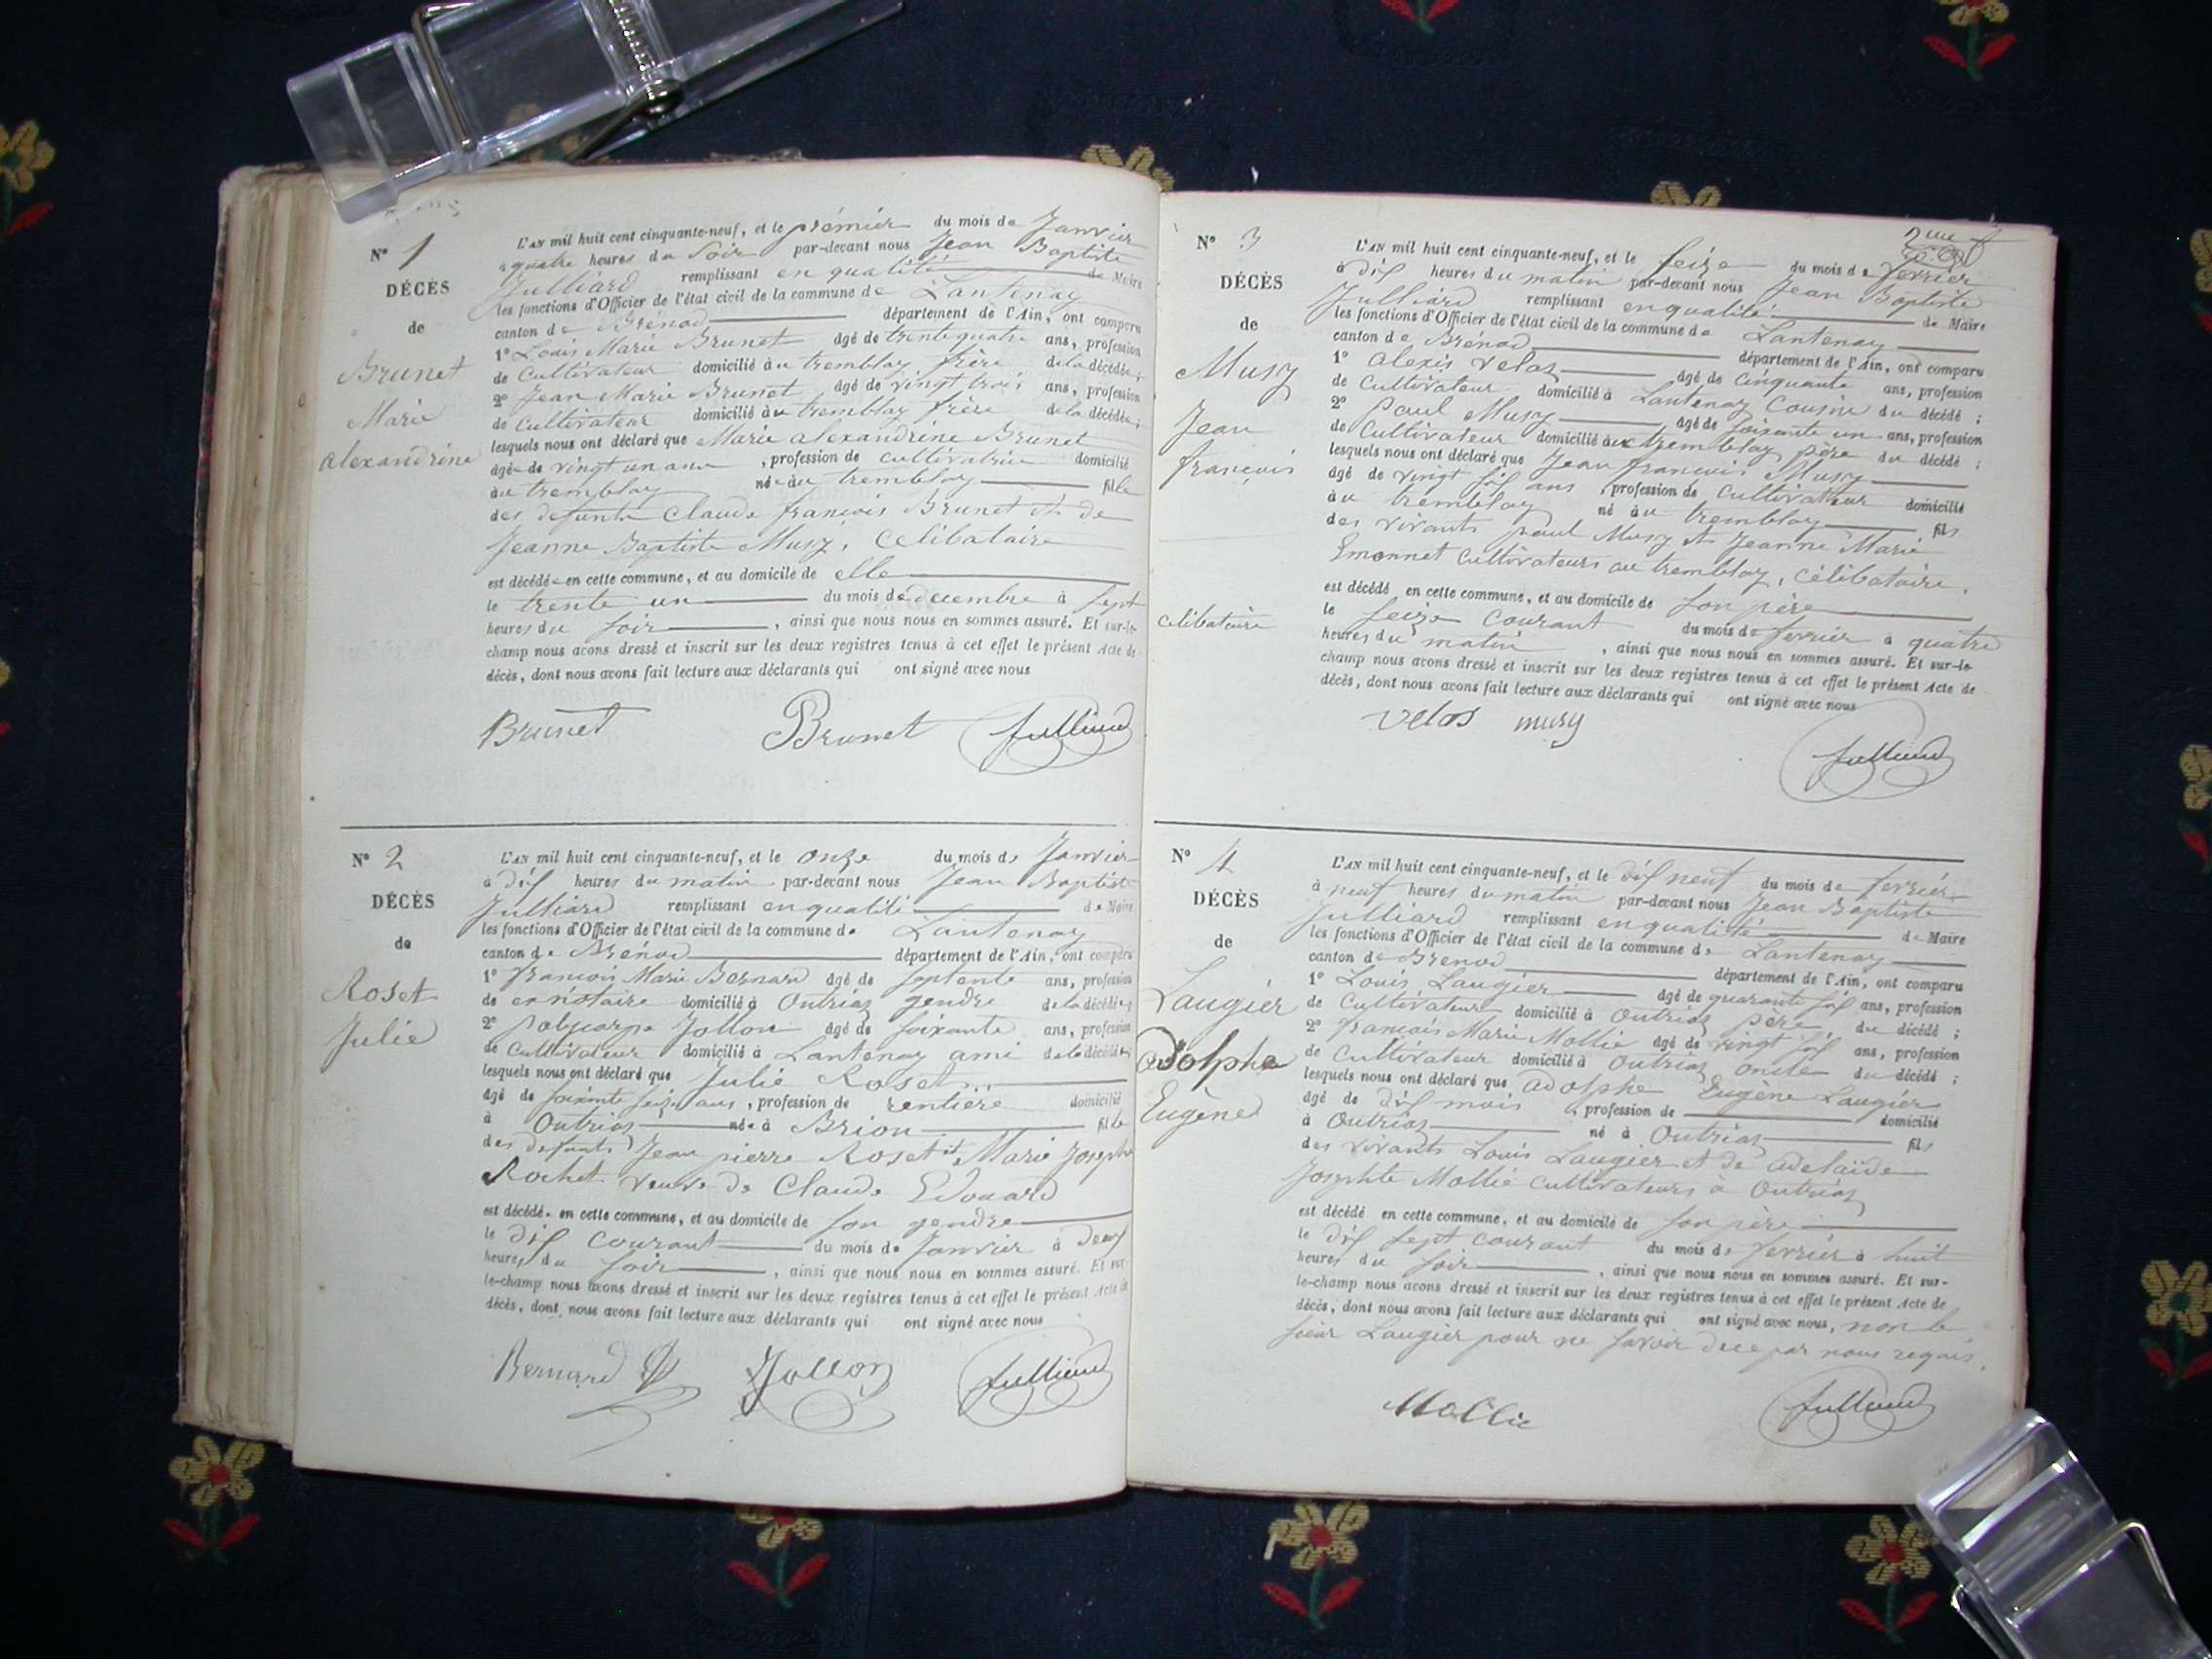 N° 1
DÉCÈS
de
Brunet
Marie
alexandrine
L'AN mil huit cent cinquante-neuf, et le prémiér du mois de Janvier
a quatre heures du Soir par-devant nous Jean Baptiste
Julliard remplissant en qualité de Maire
les fonctions d'Officier de l'état civil de la commune de Lantenay
canton de Brénod département de l'Ain, ont comparu
1° Louis Marie Brunet âgé de trente quatre ans, profession
de Cultivateur domicilié au tremblay frère de la décédée ;
2° Jean Marie Brunet âgé de vingt trois ans, profession
de Cultivateur domicilié au tremblay frère de la décédée ;
lesquels nous ont déclaré que Marie alexandrine Brunet
âgée de vingt un ans , profession de cultivatrice domicilié
au tremblay née au tremblay fille
des defunts Claude françois Brunet et de
Jeanne Baptiste Musy, Célibataire
est décédée en cette commune, et au domicile de elle
le trente un du mois de decembre à sept
heures du soir , ainsi que nous nous en sommes assuré. Et sur-le-
champ nous avons dressé et inscrit sur les deux registres tenus à cet effet le présent Acte de
décès, dont nous avons fait lecture aux déclarants qui ont signé avec nous
Brunet Brunet Julliard
N° 2
DÉCÈS
de
Roset
Julie
L'AN mil huit cent cinquante-neuf, et le onze du mois de Janvier
à dix heures du matin par-devant nous Jean Baptiste
Julliard remplissant en qualité de Maire
les fonctions d'Officier de l'état civil de la commune de Lantenay
canton de Brénod département de l'Ain, ont comparu
1° françois Marie Bernard âgé de septente ans, profession
de ex notaire domicilié à Outriaz gendre de la décédée ;
2° polycarpe Jollon âgé de soixante ans, profession
de Cultivateur domicilié à Lantenay ami de la décédée ;
lesquels nous ont déclaré que Julie Roset
âgé de soixante seize ans , profession de rentière domicilié
à Outriaz née à Brion fille
des defunts Jean pierre Roset et Marie Josephe
Rochet veuve de Claude Edouard
est décédée en cette commune, et au domicile de son gendre
le dix courant du mois de Janvier à deux
heures du soir , ainsi que nous nous en sommes assuré. Et sur-
le-champ nous avons dressé et inscrit sur les deux registres tenus à cet effet le présent Acte de
décès, dont nous avons fait lecture aux déclarants qui ont signé avec nous
Bernard Jollon Julliard
2me f
N° 3
DÉCÈS
de
Musy
Jean
françois
celibataire
L'AN mil huit cent cinquante-neuf, et le seize du mois de fevrier
à dix heures du matin par-devant nous Jean Baptiste
Julliard remplissant en qualité de Maire
les fonctions d'Officier de l'état civil de la commune de Lantenay
canton de Brénod département de l'Ain, ont comparu
1° alexis velas âgé de cinquante ans, profession
de Cultivateur domicilié à Lantenay Cousin du décédé ;
2° paul Musy âgé de soixante un ans, profession
de Cultivateur domicilié au tremblay père du décédé ;
lesquels nous ont déclaré que Jean françois Musy
âgé de vingt six ans , profession de Cultivateur domicilié
au tremblay né au tremblay fils
des vivants paul Musy et Jeanne Marie
Emonnet Cultivateurs au tremblay, célibataire.
est décédé en cette commune, et au domicile de son père
le seize courant du mois de fevrier à quatre
heures du matin , ainsi que nous nous en sommes assuré. Et sur-le-
champ nous avons dressé et inscrit sur les deux registres tenus à cet effet le présent Acte de
décès, dont nous avons fait lecture aux déclarants qui ont signé avec nous
velas musy
Julliard
N° 4
DÉCÈS
de
Laugier
adolphe
Eugène
L'AN mil huit cent cinquante-neuf, et le dix neuf du mois de fevrier
à neuf heures du matin par-devant nous Jean Baptiste
Julliard remplissant en qualité de Maire
les fonctions d'Officier de l'état civil de la commune de Lantenay
canton de Brenod département de l'Ain, ont comparu
1° Louis Laugier âgé de quarante six ans, profession
de Cultivateur domicilié à Outriaz père du décédé ;
2° françois Marie Mollie âgé de vingt six ans, profession
de Cultivateur domicilié à Outriaz oncle du décédé ;
lesquels nous ont déclaré que adolphe Eugène Laugier
âgé de dix mois , profession de domicilié
à Outriaz né à Outriaz fils
des vivants Louis Laugier et de adelaïde
Josephte Mollie Cultivateurs à Outriaz
est décédé en cette commune, et au domicile de son père
le dix sept courant du mois de fevrier à huit
heures du soir , ainsi que nous nous en sommes assuré. Et sur-
le-champ nous avons dressé et inscrit sur les deux registres tenus à cet effet le présent Acte de
décès, dont nous avons fait lecture aux déclarants qui ont signé avec nous, non le
sieur Laugier pour ne savoir de ce par nous requis.
Mollie Julliard